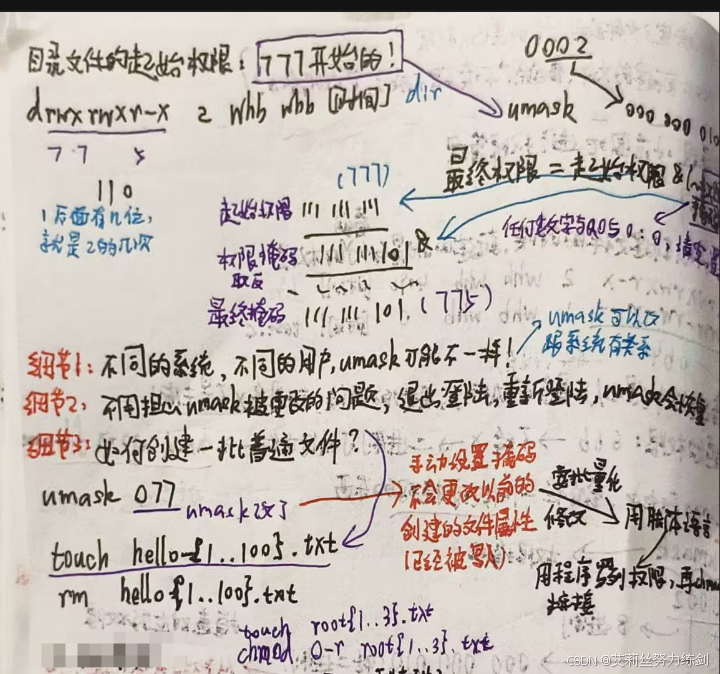 目录文件的起始权限：777开始的！
0002
drwxrwxr-x 2 whb whb [时间] dir
umask
000 000 010
7 7 5
110
1后面有几位，
就是2的几次
最终权限 = 起始权限 & (~
(777)
起始权限 111 111 111
任何数字与0：0，清空
权限掩码 111 111 101 &
取反
最终掩码 111 111 101 (775)
umask可以改
跟系统有关系
细节1：不同的系统，不同的用户，umask可能不一样！
细节2：不用担心umask被更改的问题，退出登陆，重新登陆，umask会恢复
细节3：如何创建一批普通文件？
umask 077 umask改了
手动设置掩码
不会更改以前的
创建的文件属性
(已经被写入)
要批量化
修改
用脚本语言
touch hello-{1..100}.txt
用程序写到权限，再chm
rm hello{1..100}.txt
touch root{1..3}.txt
chmod o-r root{1..3}.txt
CSDN @艾莉丝努力练剑